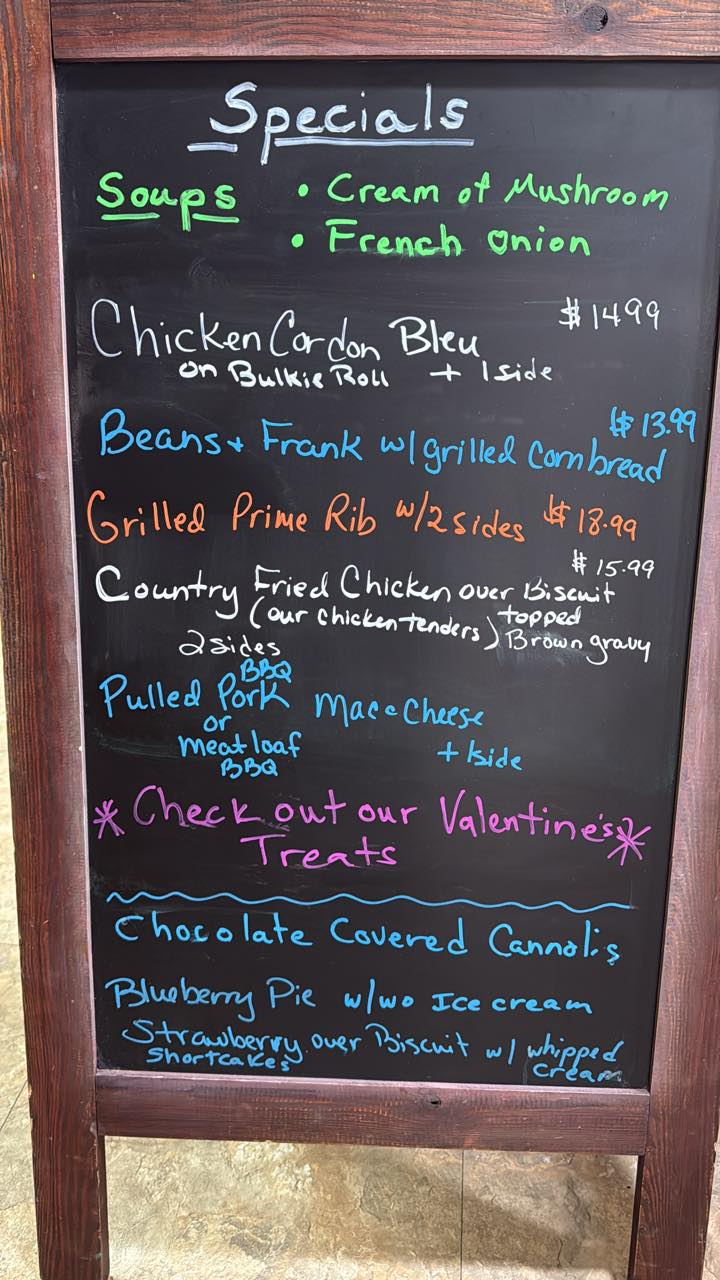 Specials
Soups • Cream of Mushroom
• French Onion
$14.99
Chicken Cordon Bleu
on Bulkie Roll + 1 side
$13.99
Beans + Frank w/grilled cornbread
Grilled Prime Rib w/2 sides $18.99
$15.99
Country Fried Chicken over Biscuit
(our chicken tenders) topped
2 sides Brown gravy
BBQ
Pulled Pork Mac & Cheese
or
meatloaf + 1 side
BBQ
* Check out our Valentine's *
Treats
Chocolate Covered Cannolis
Blueberry Pie w/wo Ice cream
Strawberry over Biscuit w/ whipped
Shortcakes cream